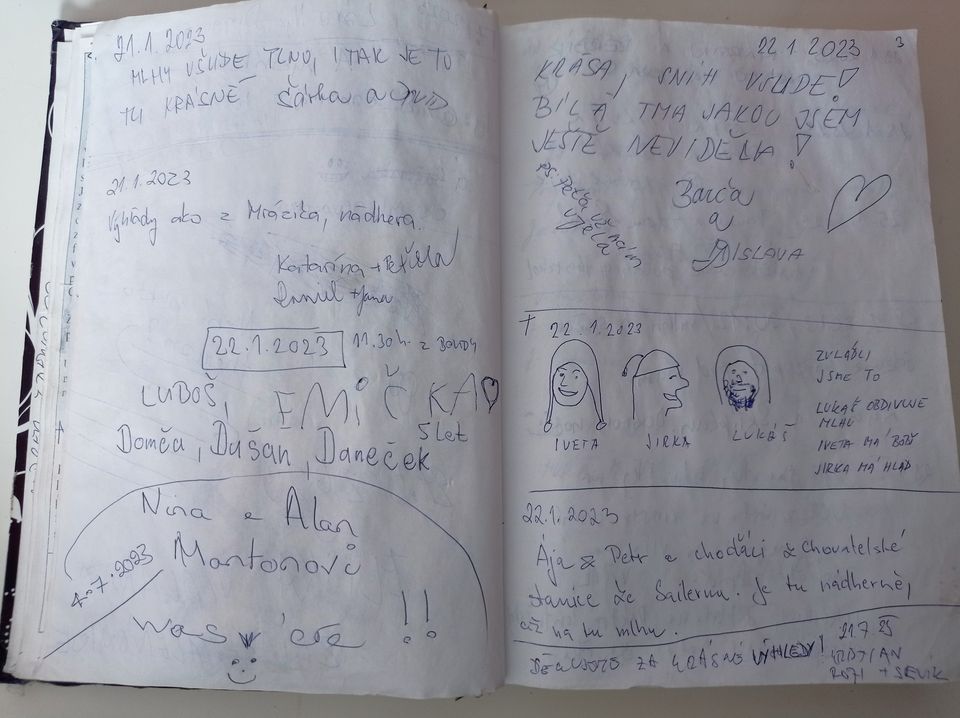 21.1.2023
MLHY VŠUDE PLNO, I TAK JE TO
TU KRÁSNĚ Šárka a
21.1.2023
Výhľady ako z Mrázika, nádhera.
Katarína +
Daniel + Jana
22.1.2023 11.30 h. z BOUDY
LUBOŠ, EMIČKA
5 let
Domča, Dušan, Daneček
Nina a Alan
Mantonovi
4.7.2023
was 'ere !!
22.1.2023 3
KRÁSA, SNÍH VŠUDE!
BÍLÁ TMA JAKOU JSEM
JEŠTĚ NEVIDĚLA!
Barča
a
DISLAVA
PS.
† 22.1.2023
IVETA JIRKA LUKÁŠ
ZVLÁDLI
JSME TO
LUKÁŠ OBDIVUJE
MLHU
IVETA MÁ
JIRKA MÁ HLAD
22.1.2023
Ája & Petr a chodáci z chovatelské
stanice Ze Sailernu. Je tu nádherně,
až na tu mlhu.
DĚKUJEME ZA KRÁSNÉ VÝHLEDY!
21.7.25